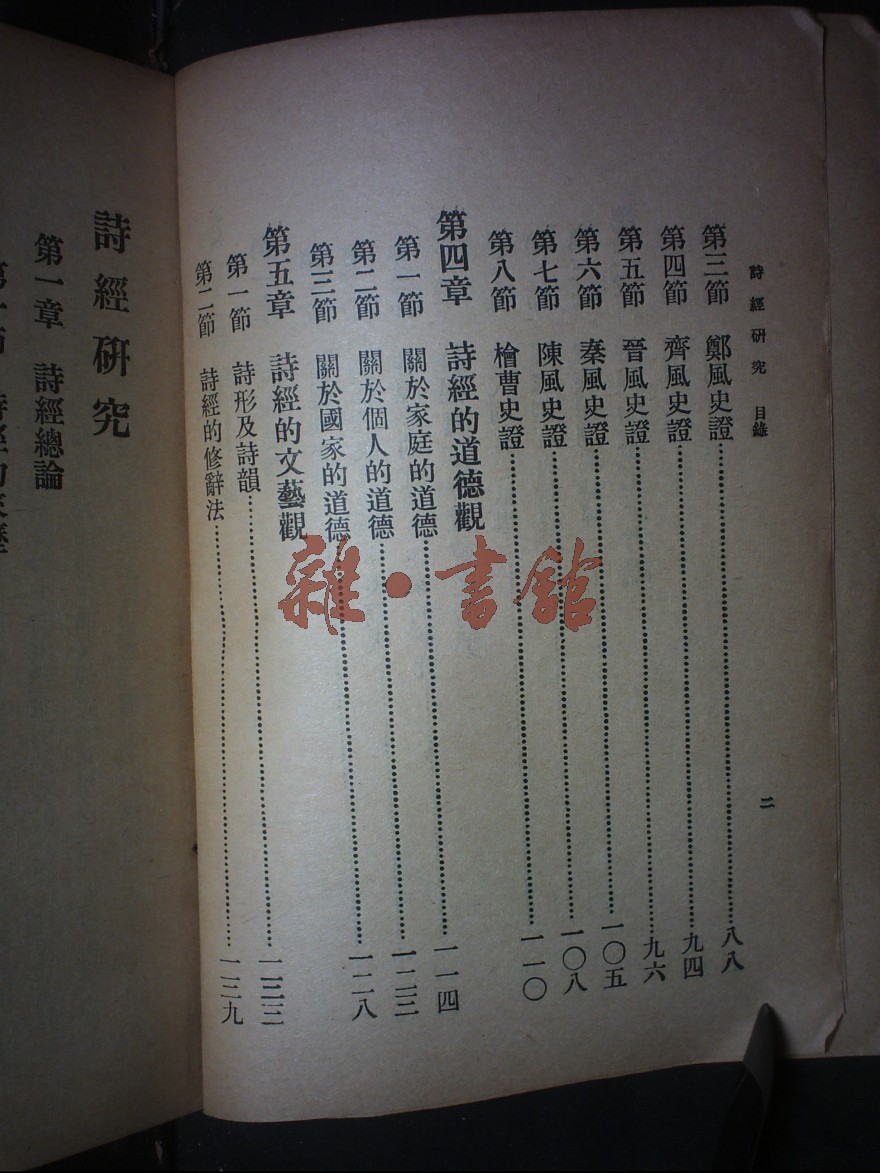 詩經研究 目錄
二
第三節 鄭風史證……八八
第四節 齊風史證……九四
第五節 晉風史證……九六
第六節 秦風史證……一〇五
第七節 陳風史證……一〇八
第八節 檜曹史證……一一〇
第四章 詩經的道德觀
第一節 關於家庭的道德……一一四
第二節 關於個人的道德……一二三
第三節 關於國家的道德……一二八
第五章 詩經的文藝觀
第一節 詩形及詩韻……一三三
第二節 詩經的修辭法……一三九
詩經研究
第一章 詩經總論
雜·書館